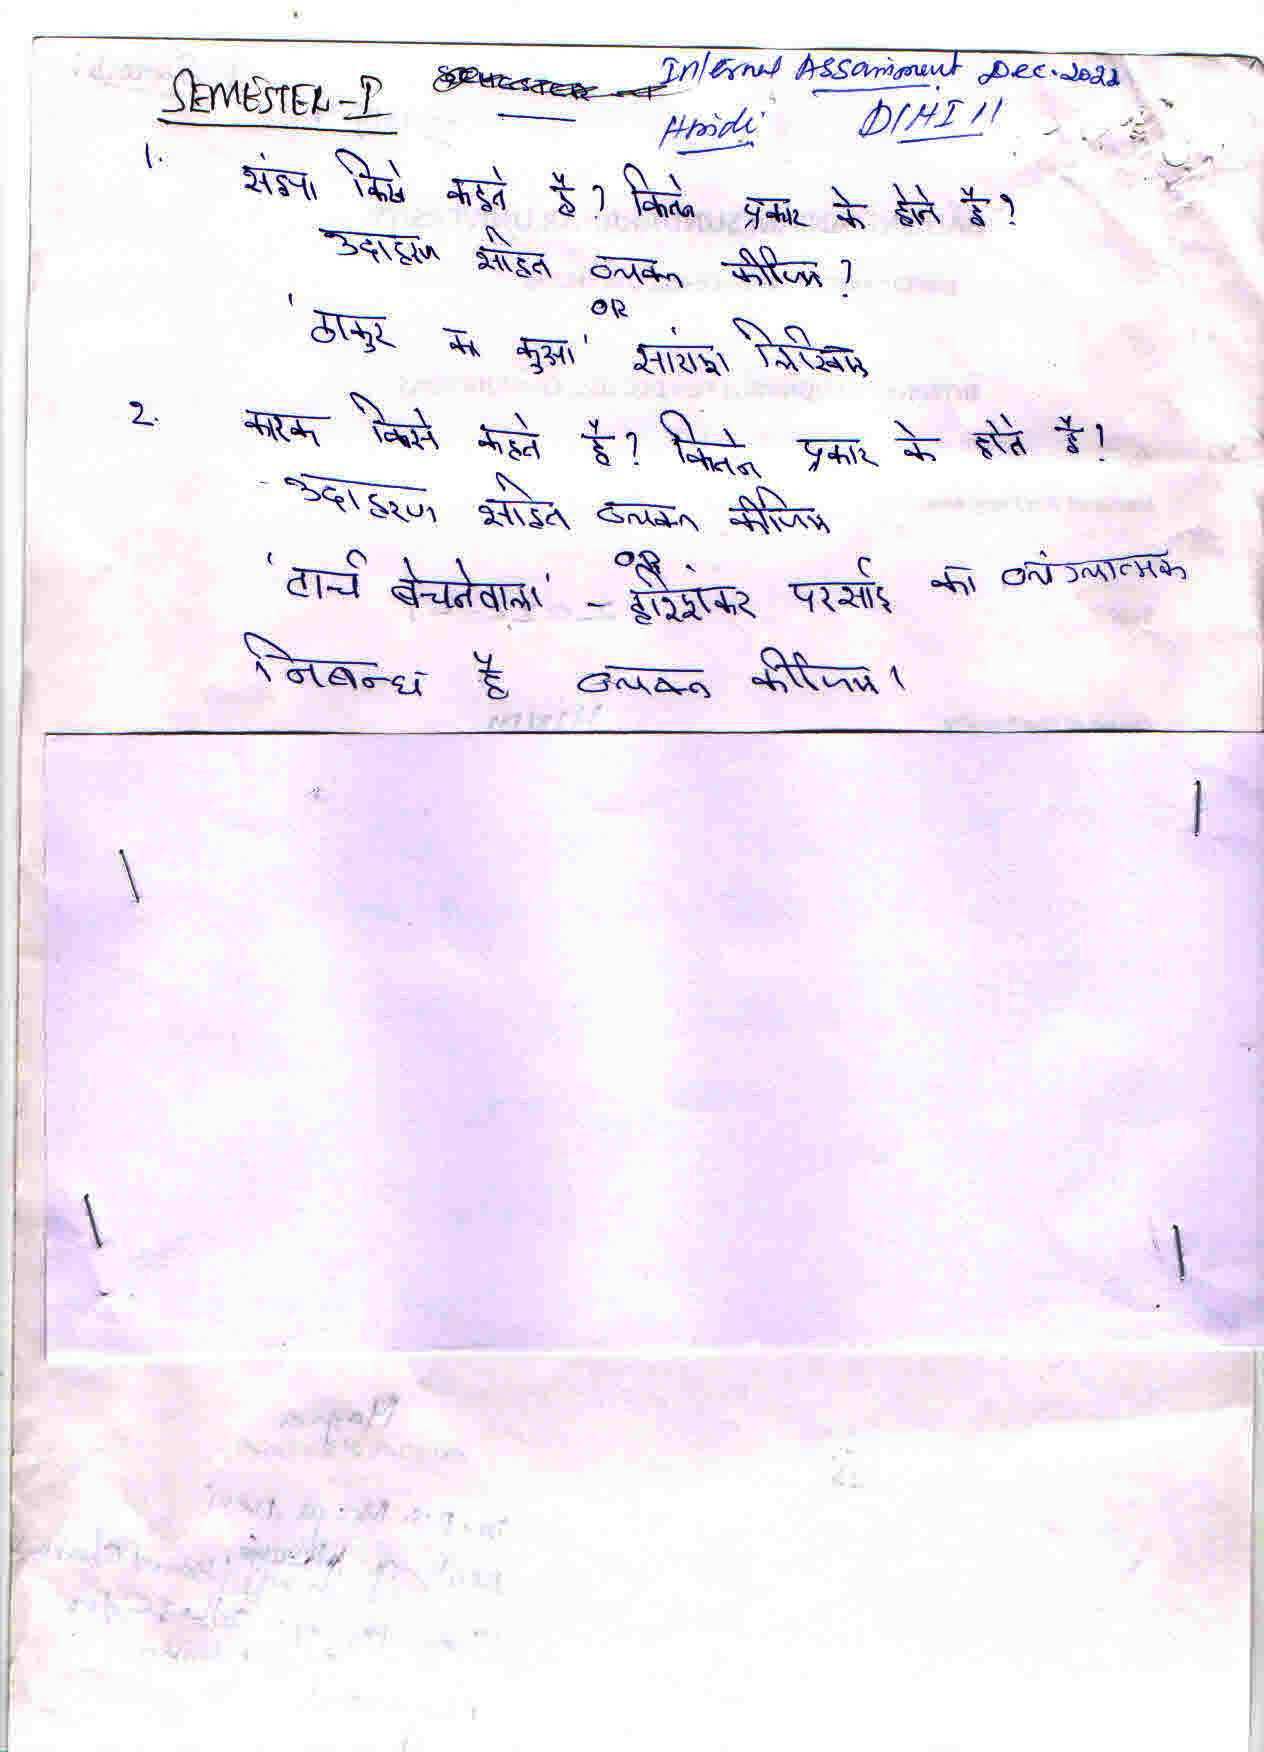 SEMESTER-I Internal Assainment Dec. 2022
Hindi DIHI 11
1. संज्ञा किसे कहते है? कितने प्रकार के होते है?
उदाहरण सहित व्यक्त कीजिए?
OR
'ठाकुर का कुआ' सारांश लिखिए
2. कारक किसे कहते है? कितने प्रकार के होते है?
उदाहरण सहित व्यक्त कीजिए
OR
'टार्च बेचनेवाला' – हरिशंकर परसाई का व्यंग्यात्मक
निबन्ध है व्यक्त कीजिए।